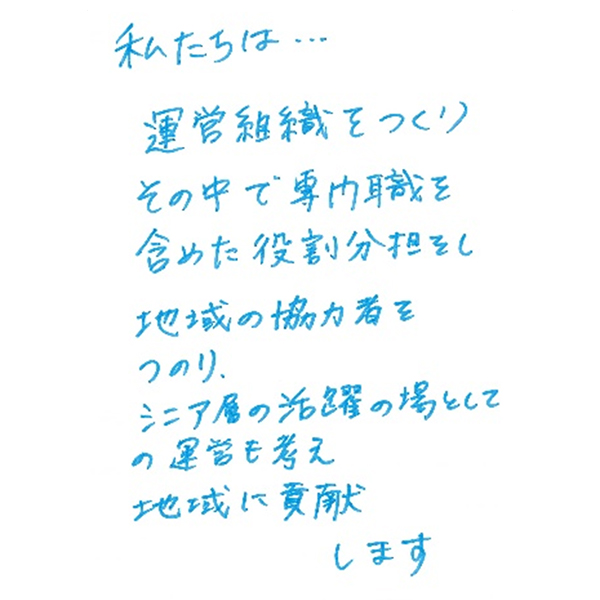 私たちは…
運営組織をつくり
その中で専門職を
含めた役割分担をし
地域の協力者を
つのり、
シニア層の活躍の場として
の運営も考え
地域に貢献
します